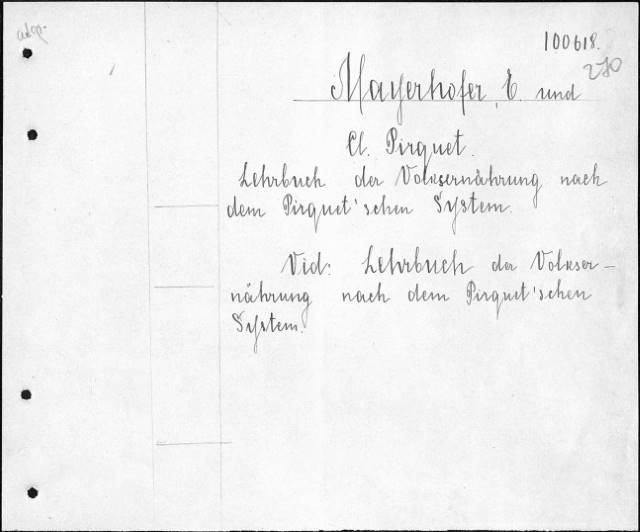 100618.
270
Mayerhofer, E. und
Cl. Pirquet.
Lehrbuch der Volksernährung nach
dem Pirquet'schen System.
Vid: Lehrbuch der Volkser-
nährung nach dem Pirquet'schen
System.